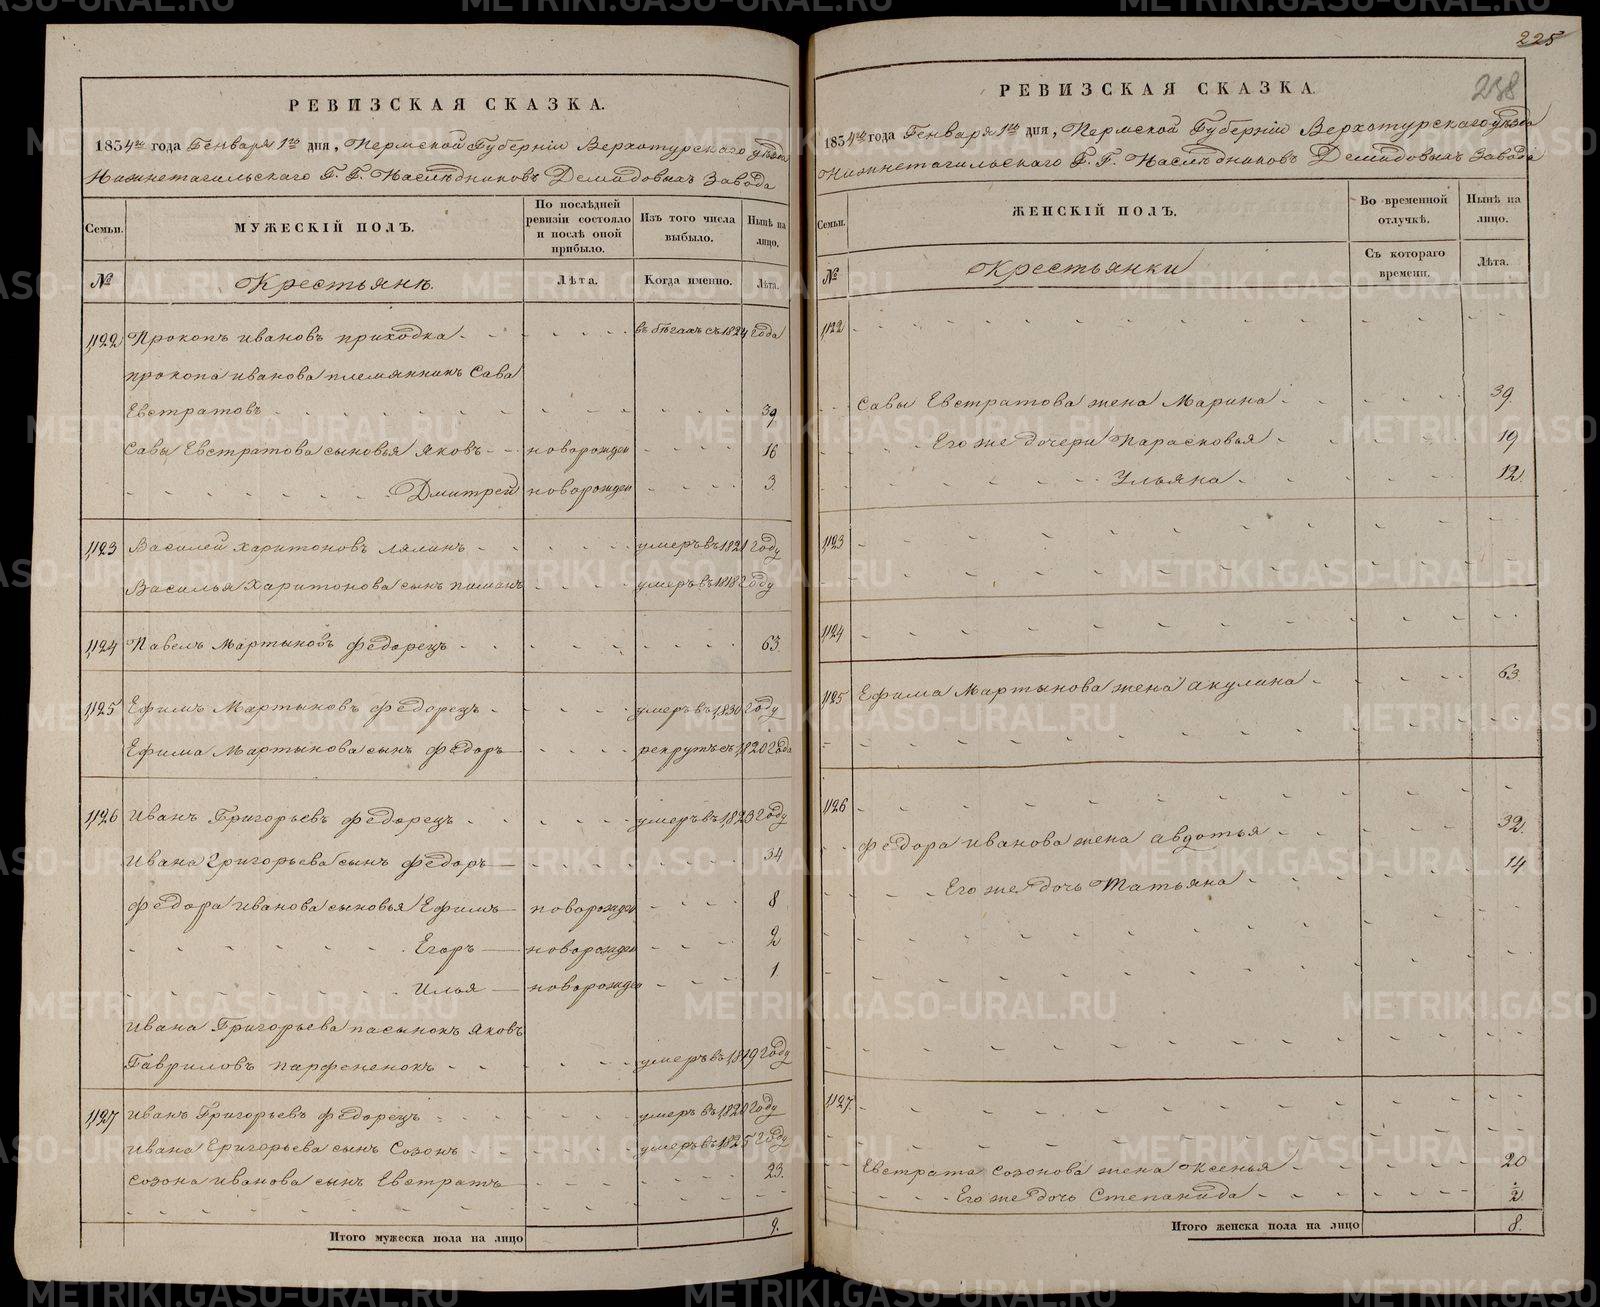 РЕВИЗСКАЯ СКАЗКА.
1834го года Генваря 1го дня, Пермской Губерніи Верхотурскаго уѣзда
Нижнетагильскаго Г. Г. Наслѣдниковъ Демидовыхъ Завода
Семьи.
МУЖЕСКІЙ ПОЛЪ.
По послѣдней ревизіи состояло и послѣ оной прибыло.
Изъ того числа выбыло.
Нынѣ на лицо.
№
Крестьянѣ.
Лѣта.
Когда именно.
Лѣта.
1122 Прокопъ Ивановъ приходка въ бѣгахъ съ 1824 года
прокопа иванова племянникъ Сава
Евстратовъ 39
Савы Евстратова сыновья Яковъ новорожден 16
Дмитрей новорожден 3.
1123 Василей Харитоновъ лялинъ умеръ въ 1821 году
Василья Харитонова сынъ умеръ въ 1818 году
1124 Павелъ Мартыновъ федорецъ 63.
1125 Ефимъ Мартыновъ федорецъ умеръ въ 1830 году
Ефима Мартынова сынъ федоръ рекрутъ съ 1820 года
1126 Иванъ Григорьевъ федорецъ умеръ въ 1823 году
Ивана Григорьева сынъ федоръ 34
федора иванова сыновья Ефимъ новорожден 8
Егоръ новорожден 2
Илья новорожден 1
Ивана Григорьева пасынокъ Яковъ
Гавриловъ парфененокъ умеръ въ 1819 году
1127 Иванъ Григорьевъ федорецъ умеръ въ 1820 году
Ивана Григорьева сынъ Созонъ умеръ въ 1825 году
созона иванова сынъ Евстратъ 23.
Итого мужеска пола на лицо 9.
225
238
РЕВИЗСКАЯ СКАЗКА
1834го года Генваря 1го дня, Пермской Губерніи Верхотурскаго уѣзда
Нижнетагильскаго Г. Г. Наслѣдниковъ Демидовыхъ Завода
Семьи.
ЖЕНСКІЙ ПОЛЪ.
Во временной отлучкѣ.
Нынѣ на лицо.
№
Крестьянки
Съ котораго времени.
Лѣта.
1122
Савы Евстратова жена Марина 39.
Его же дочери Парасковья 19
Ульяна 12.
1123
1124
1125 Ефима Мартынова жена акулина 63.
1126
федора иванова жена авдотья 32.
Его же дочь Татьяна 14
1127
Евстрата созонова жена Оксенья 20
Его же дочь Степанида 1/2
Итого женска пола на лицо 8.
METRIKI.GASO-URAL.RU